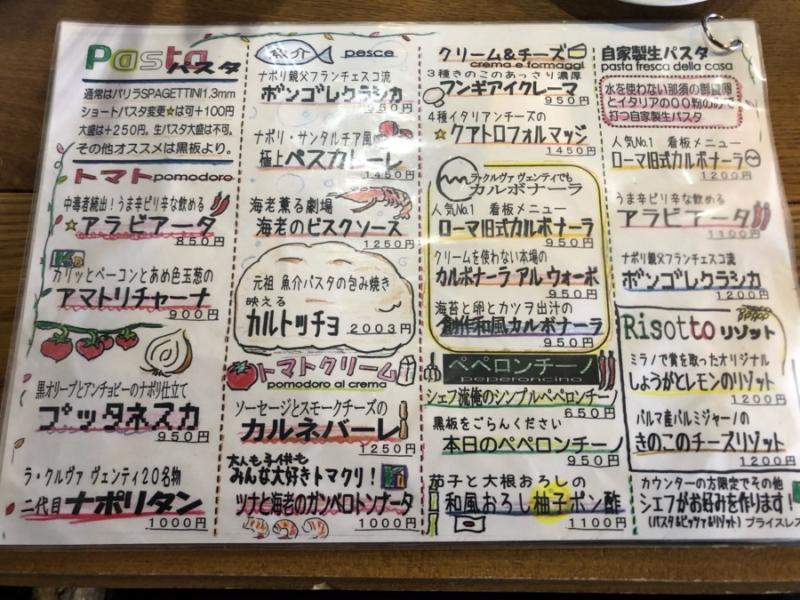 Pasta
パスタ
通常はバリラSPAGETTINI1.3mm
ショートパスタ変更☆は可+100円
大盛は+250円。生パスタ大盛は不可。
その他オススメは黒板より。
トマト pomodoro
中毒者続出！うま辛ピリ辛な飲める
☆アラビアータ
850円
カリッとベーコンとあめ色玉葱の
アマトリチャーナ
900円
黒オリーブとアンチョビーのナポリ仕立て
プッタネスカ
950円
ラ・クルヴァ ヴェンティ20名物
二代目ナポリタン
1000円
魚介 pesce
ナポリ親父フランチェスコ流
ボンゴレクラシカ
950円
ナポリ・サンタルチア風
極上ペスカレーレ
1450円
海老薫る劇場
海老のビスクソース
1250円
元祖 魚介パスタの包み焼き
映える
カルトッチョ 2003円
トマトクリーム
pomodoro al crema
ソーセージとスモークチーズの
カルネバーレ
1250円
大人も子供も
みんな大好きトマクリ！
ツナと海老のガンベロトンナータ
1000円
クリーム&チーズ
crema e formaggi
3種きのこのあっさり濃厚
フンギアイクレーマ
950円
4種イタリアンチーズの
☆クアトロフォルマッジ
1450円
ラ・クルヴァ ヴェンティでも
カルボナーラ
人気No.1 看板メニュー
ローマ旧式カルボナーラ
950円
クリームを使わない本場の
カルボナーラ アル ウォーボ
950円
海苔と卵とカツヲ出汁の
創作和風カルボナーラ
950円
ペペロンチーノ
peperoncino
シェフ流俺のシンプルペペロンチーノ
650円
黒板をごらんください
本日のペペロンチーノ
950円
茄子と大根おろしの
和風おろし柚子ポン酢
1100円
自家製生パスタ
pasta fresca della casa
水を使わない那須の御養卵
とイタリアの00粉のみで
打つ自家製生パスタ
人気No.1 看板メニュー
ローマ旧式カルボナーラ
1200円
うま辛ピリ辛な飲める
アラビアータ
1100円
ナポリ親父フランチェスコ流
ボンゴレクラシカ
1200円
Risotto リゾット
ミラノで賞を取ったオリジナル
しょうがとレモンのリゾット
1200円
パルマ産パルミジャーノの
きのこのチーズリゾット
1200円
カウンターの方限定でその他
シェフがお好みを作ります！
(パスタ&ピッツァ&リゾット) プライスレス